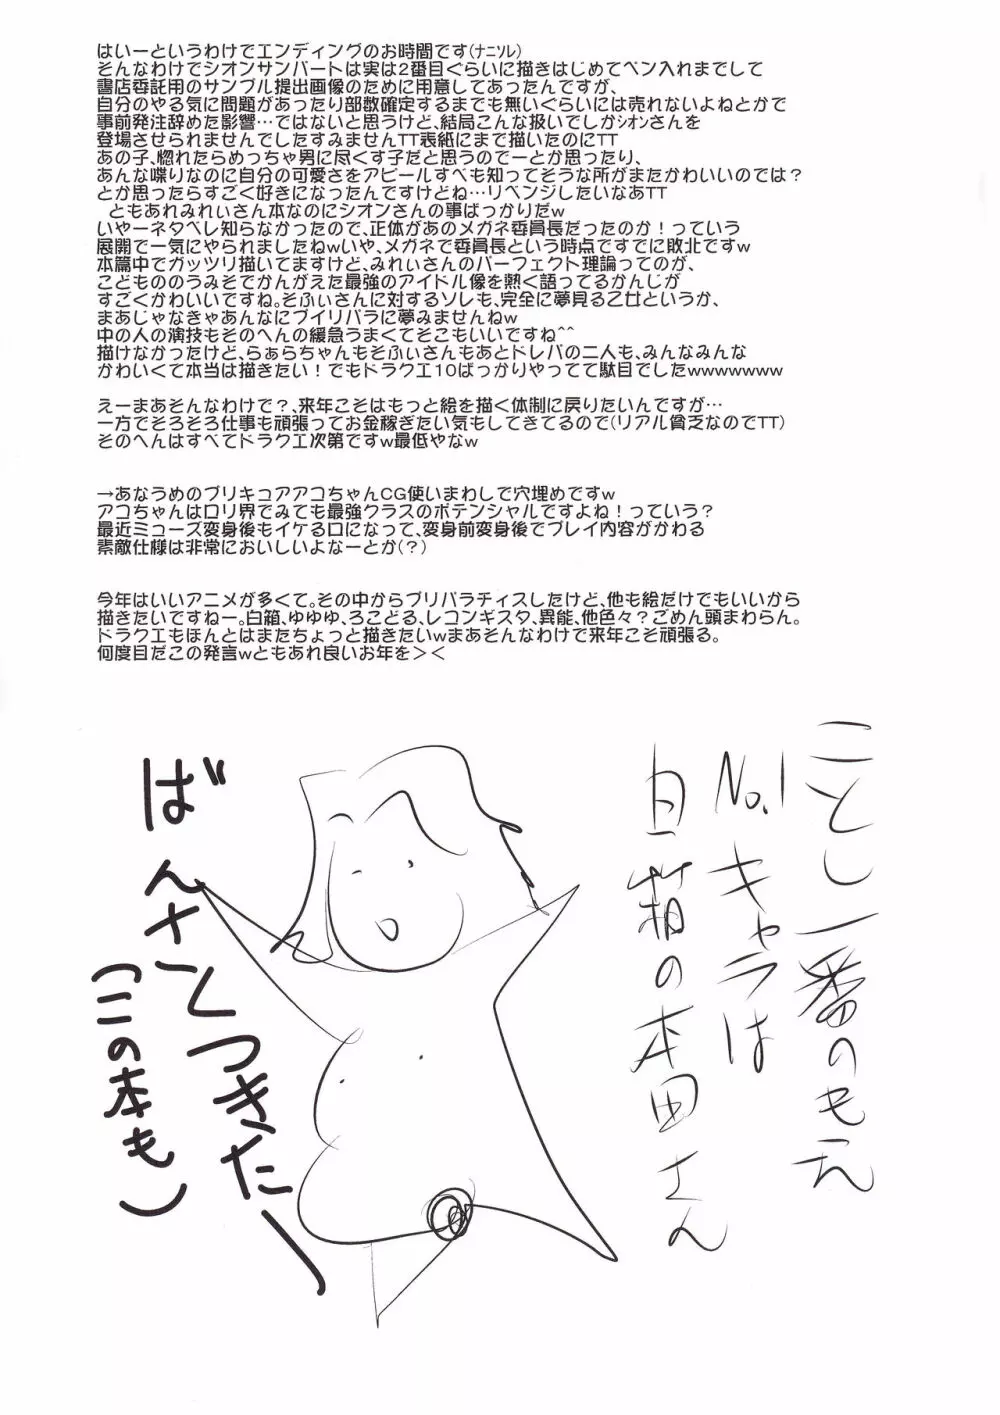 はいーというわけでエンディングのお時間です(ﾅﾆｿﾚ)
そんなわけでシオンサンパートは実は2番目ぐらいに描きはじめてペン入れまでして
書店委託用のサンプル提出画像のために用意してあったんですが、
自分のやる気に問題があったり部数確定するまでも無いぐらいには売れないよねとかで
事前発注辞めた影響…ではないと思うけど、結局こんな扱いでしかｼｵﾝさんを
登場させられませんでしたすみませんTT表紙にまで描いたのにTT
あの子、惚れたらめっちゃ男に尽くす子だと思うのでーとか思ったり、
あんな喋りなのに自分の可愛さをアピールすべも知ってそうな所がまたかわいいのでは？
とか思ったらすごく好きになったんですけどね…リベンジしたいなあTT
ともあれみれぃさん本なのにシオンさんの事ばっかりだw
いやーネタベレ知らなかったので、正体があのメガネ委員長だったのか！っていう
展開で一気にやられましたねwいや、メガネで委員長という時点ですでに敗北ですw
本篇中でガッツリ描いてますけど、みれぃさんのパーフェクト理論ってのが、
こどもののうみそでかんがえた最強のアイドル像を熱く語ってるかんじが
すごくかわいいですね。そふぃさんに対するソレも、完全に夢見る乙女というか、
まあじゃなきゃあんなにプイリパラに夢みませんねw
中の人の演技もそのへんの緩急うまくてそこもいいですね^^
描けなかったけど、らぁらちゃんもそふぃさんもあとドレパの二人も、みんなみんな
かわいくて本当は描きたい！でもドラクエ10ばっかりやってて駄目でしたwwwwwww
えーまあそんなわけで？、来年こそはもっと絵を描く体制に戻りたいんですが…
一方でそろそろ仕事も頑張ってお金稼ぎたい気もしてきてるので(リアル貧乏なのでTT)
そのへんはすべてドラクエ次第ですw最低やなw
→あなうめのプリキュアアコちゃんCG使いまわしで穴埋めですw
アコちゃんはロリ界でみても最強クラスのポテンシャルですよね！っていう？
最近ミューズ変身後もイケる口になって、変身前変身後でプレイ内容がかわる
素敵仕様は非常においしいよなーとか(？)
今年はいいアニメが多くて。その中からプリパラチョイスしたけど、他も絵だけでもいいから
描きたいですねー。白箱、ゆゆゆ、ろこどる、レコンギスタ、異能、他色々？ごめん頭まわらん。
ドラクエもほんとはまたちょっと描きたいwまあそんなわけで来年こそ頑張る。
何度目だこの発言wともあれ良いお年を＞＜
ことし一番のもえ
No.1キャラは
白箱の本田さん
ばんさくつきたー
(この本も)